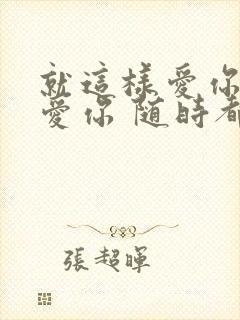 就這樣愛你
愛你 隨時都
張超暉